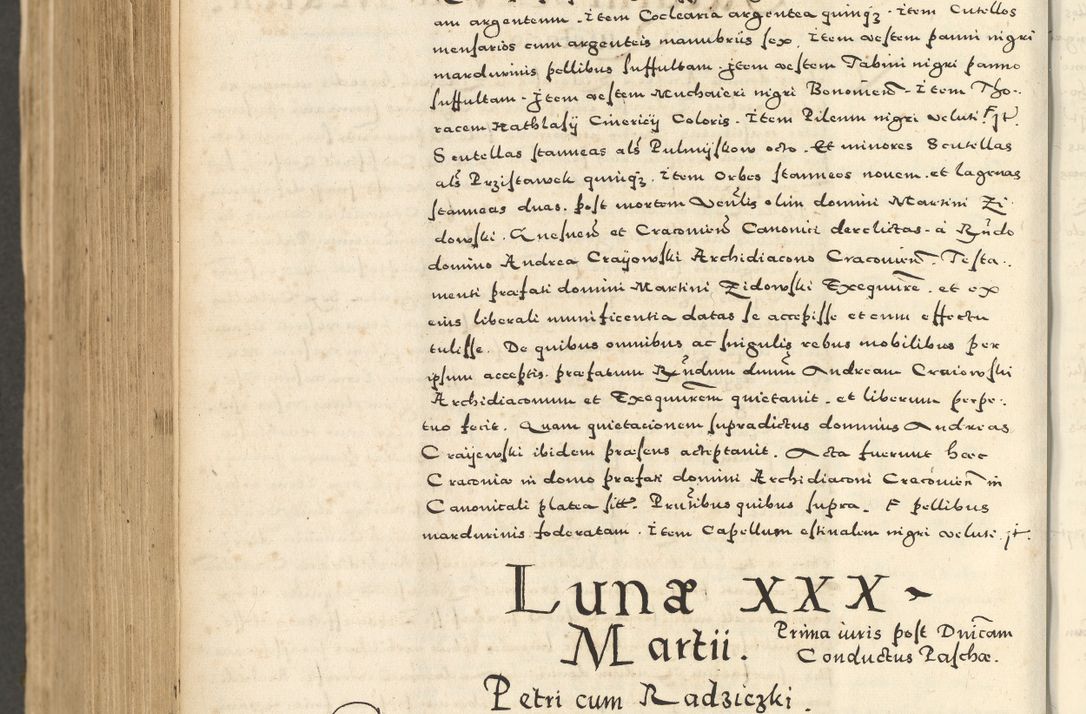 am argenteum. Item Coclearia argentea quinqz. Item Cutellos
mensarios cum argenteis manubriis sex. Item vestem panni nigri
mardurinis pellibus suffultam. jtem vestem Tabini nigri panno
suffultam. Jtem vestem Muchaieri nigri Bononien. Item Tho-
racem Kathlasij Cinericij Coloris. Item Pileum nigri veluti F jt.
Scutellas stanneas als Pulmijskow octo. Et minores Scutellas
als Przistawek quinqz. Item Orbes stanneos novem. et lagenas
stanneas duas. post mortem Venlis olim domini Martini Zi-
dowski. Gnesnen et Cracovien Canonici derelictas. à Rndo
domino Andrea Crayowski Archidiacono Cracovien. Testa-
menti præfati domini Martini Zidowski Exequutre. et ex
eius liberali munificentia datas se accepisse et cum effectu
tulisse. De quibus omnibus ac singulis rebus mobilibus per
ipsum acceptis. præfatum Rndum dnum Andream Craiowski
Archidiaconum et Exequutrem quietavit. et liberum perpe-
tuo fecit. Quam quietacionem supradictus dominus Andreas
Crayewski ibidem præsens acceptavit. Acta fuerunt hæc
Cracoviæ in domo præfati domini Archidiaconi Cracovien in
Canonicali platea sitt. Pntibus quibus supra. F pellibus
mardurinis foderatam. Item Capellum estivalem nigri veluti. jt.
Lunæ XXX
Martii. Prima iuris post Dnicam
Conductus Paschæ.
Petri cum Radziczki.